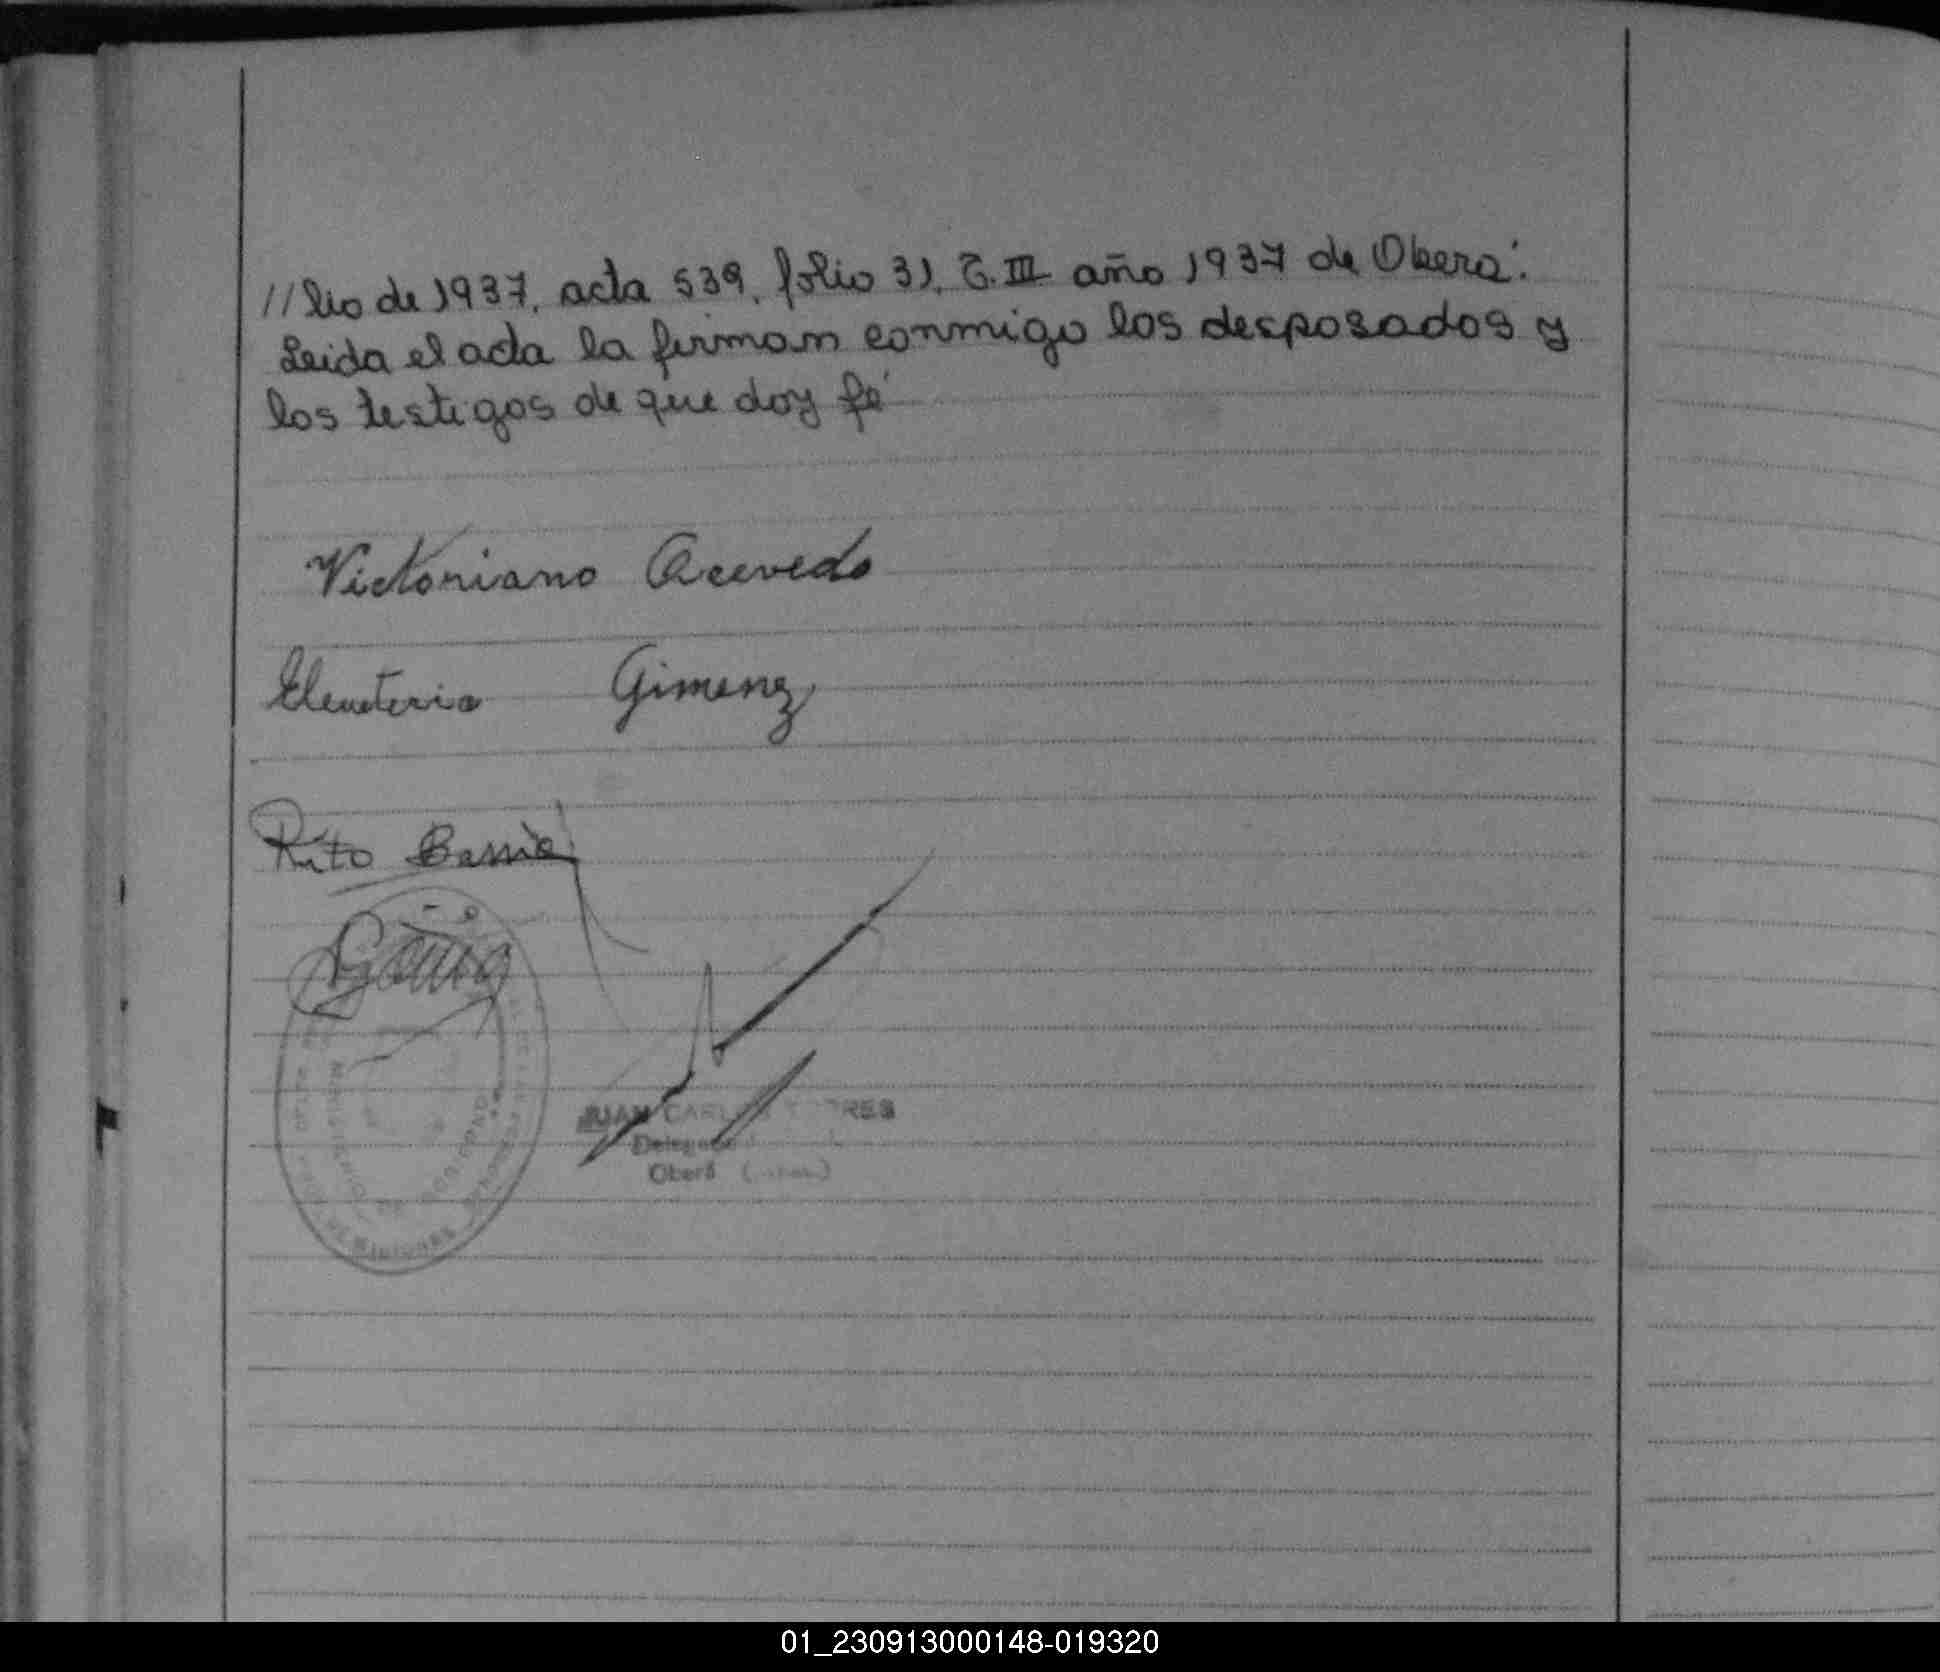 //lio de 1937, acta 539, folio 31, T. III año 1937 de Oberá.
Leida el acta la firman conmigo los desposados y
los testigos de que doy fé
Victoriano Acevedo
Eleuteria Gimenez
Rito
JUAN CARLOS TORRES
Delegado
Oberá
01_230913000148-019320